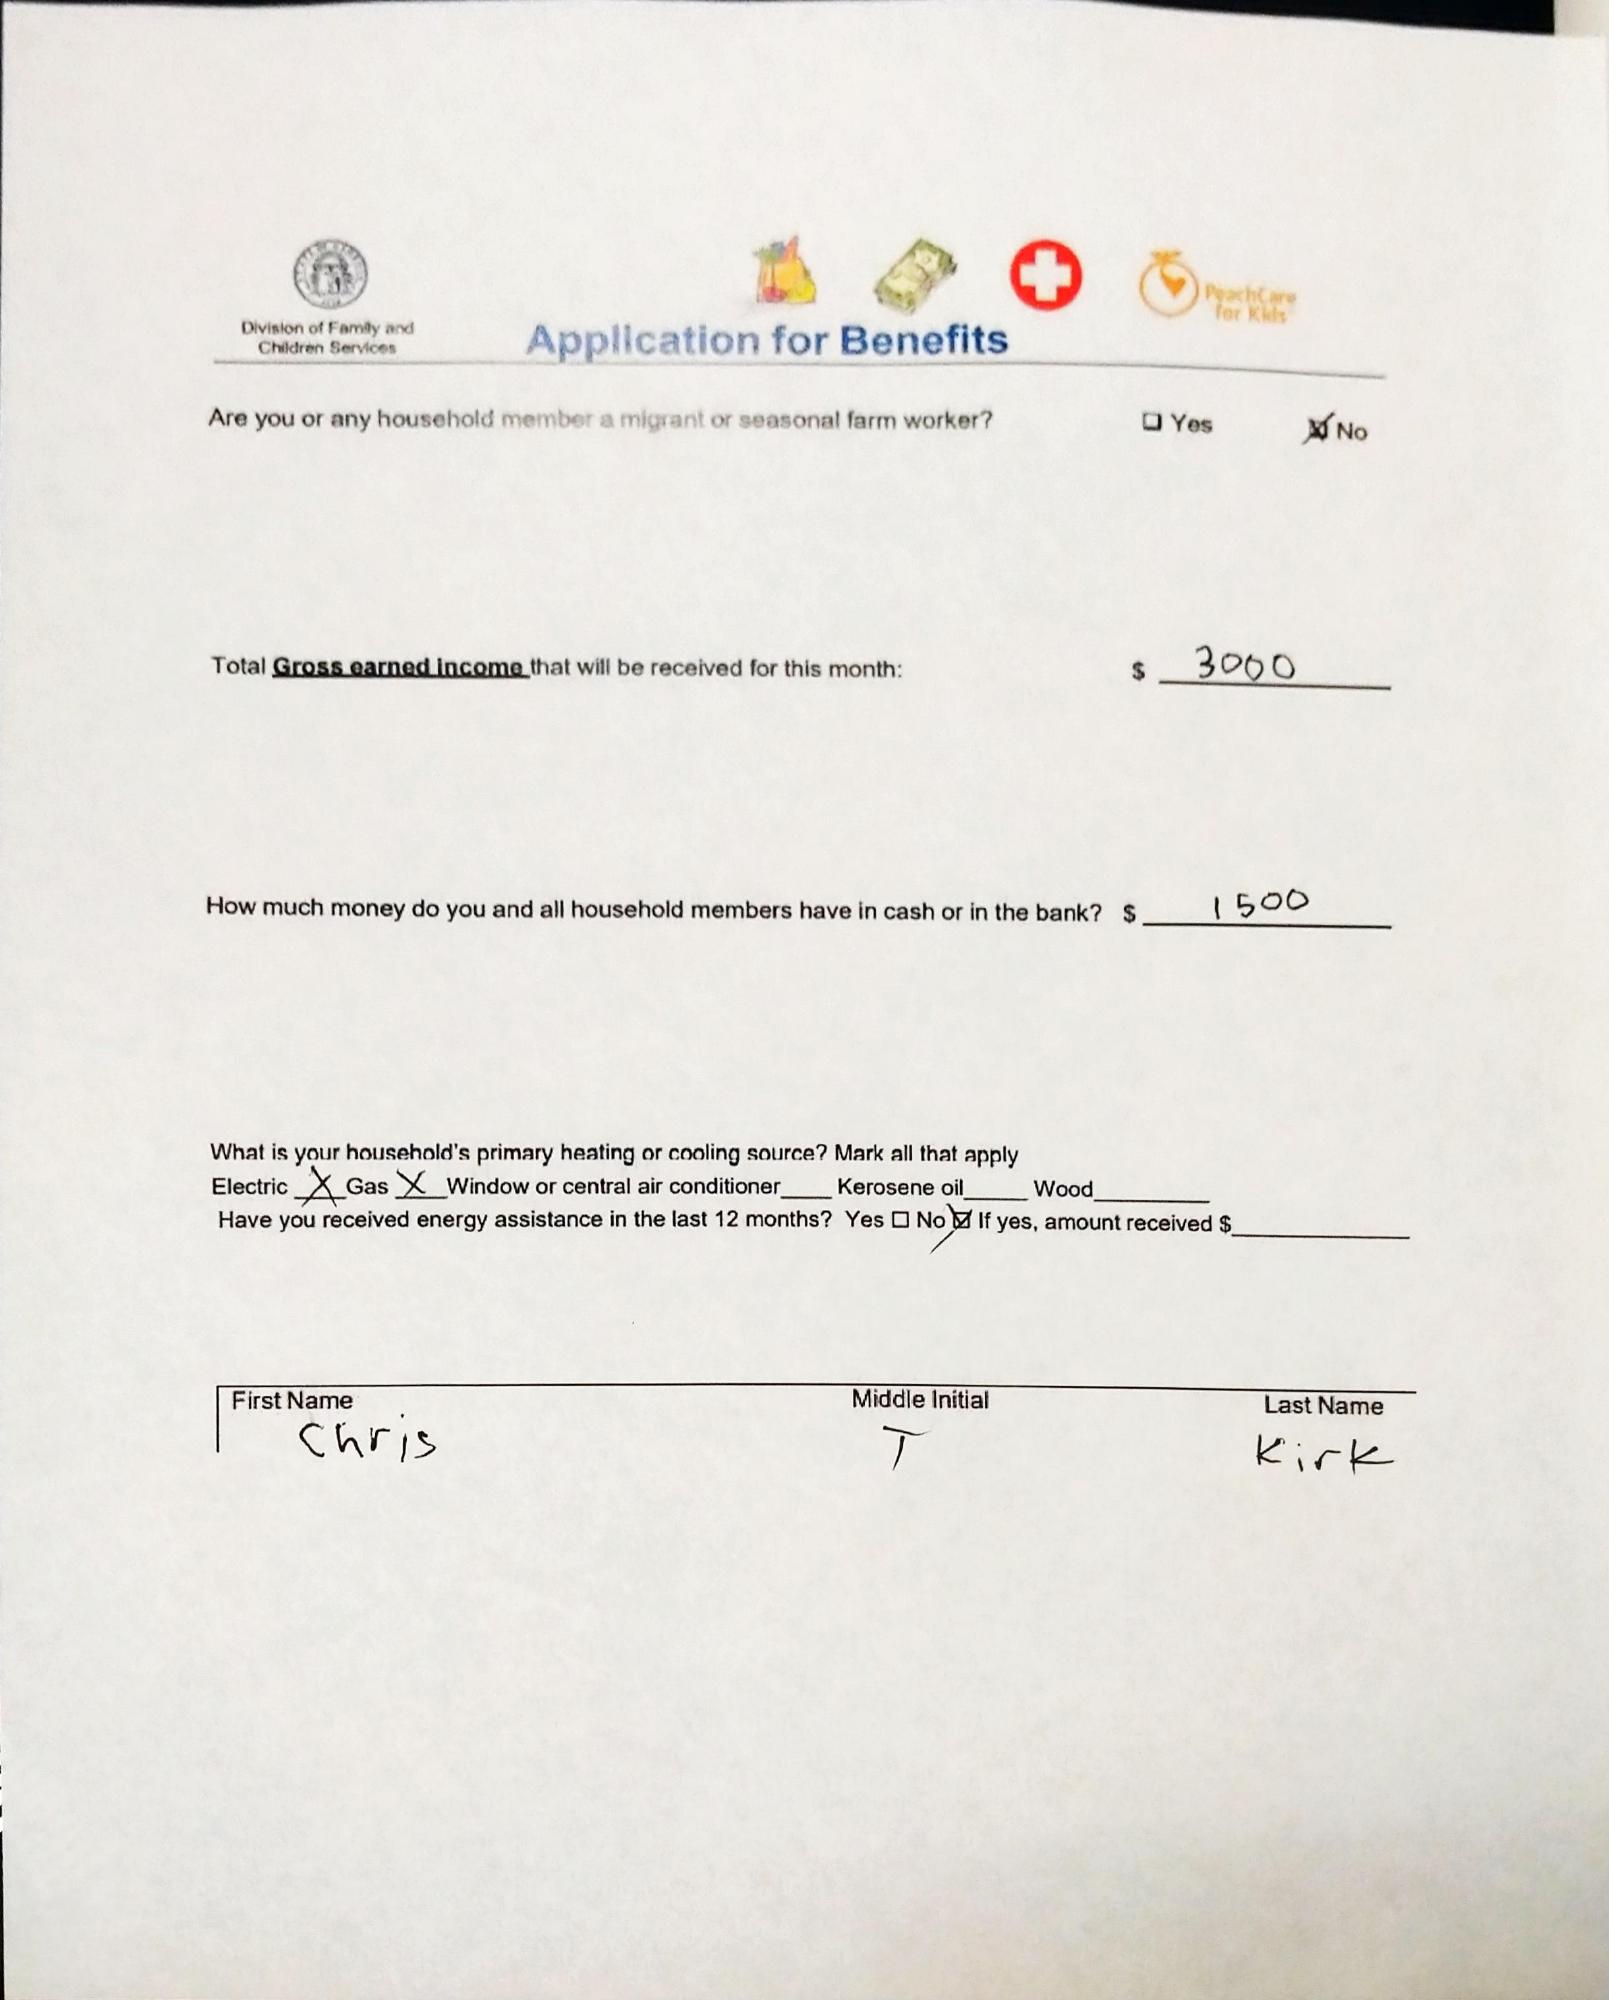 Division of Family and
Children Services
PeachCare
for Kids
Application for Benefits
Are you or any household member a migrant or seasonal farm worker? ☐ Yes ☒ No
Total Gross earned income that will be received for this month: $ 3000
How much money do you and all household members have in cash or in the bank? $ 1500
What is your household's primary heating or cooling source? Mark all that apply
Electric X Gas X Window or central air conditioner____ Kerosene oil____ Wood____
Have you received energy assistance in the last 12 months? Yes ☐ No ☒ If yes, amount received $____
First Name Middle Initial Last Name
Chris T Kirk